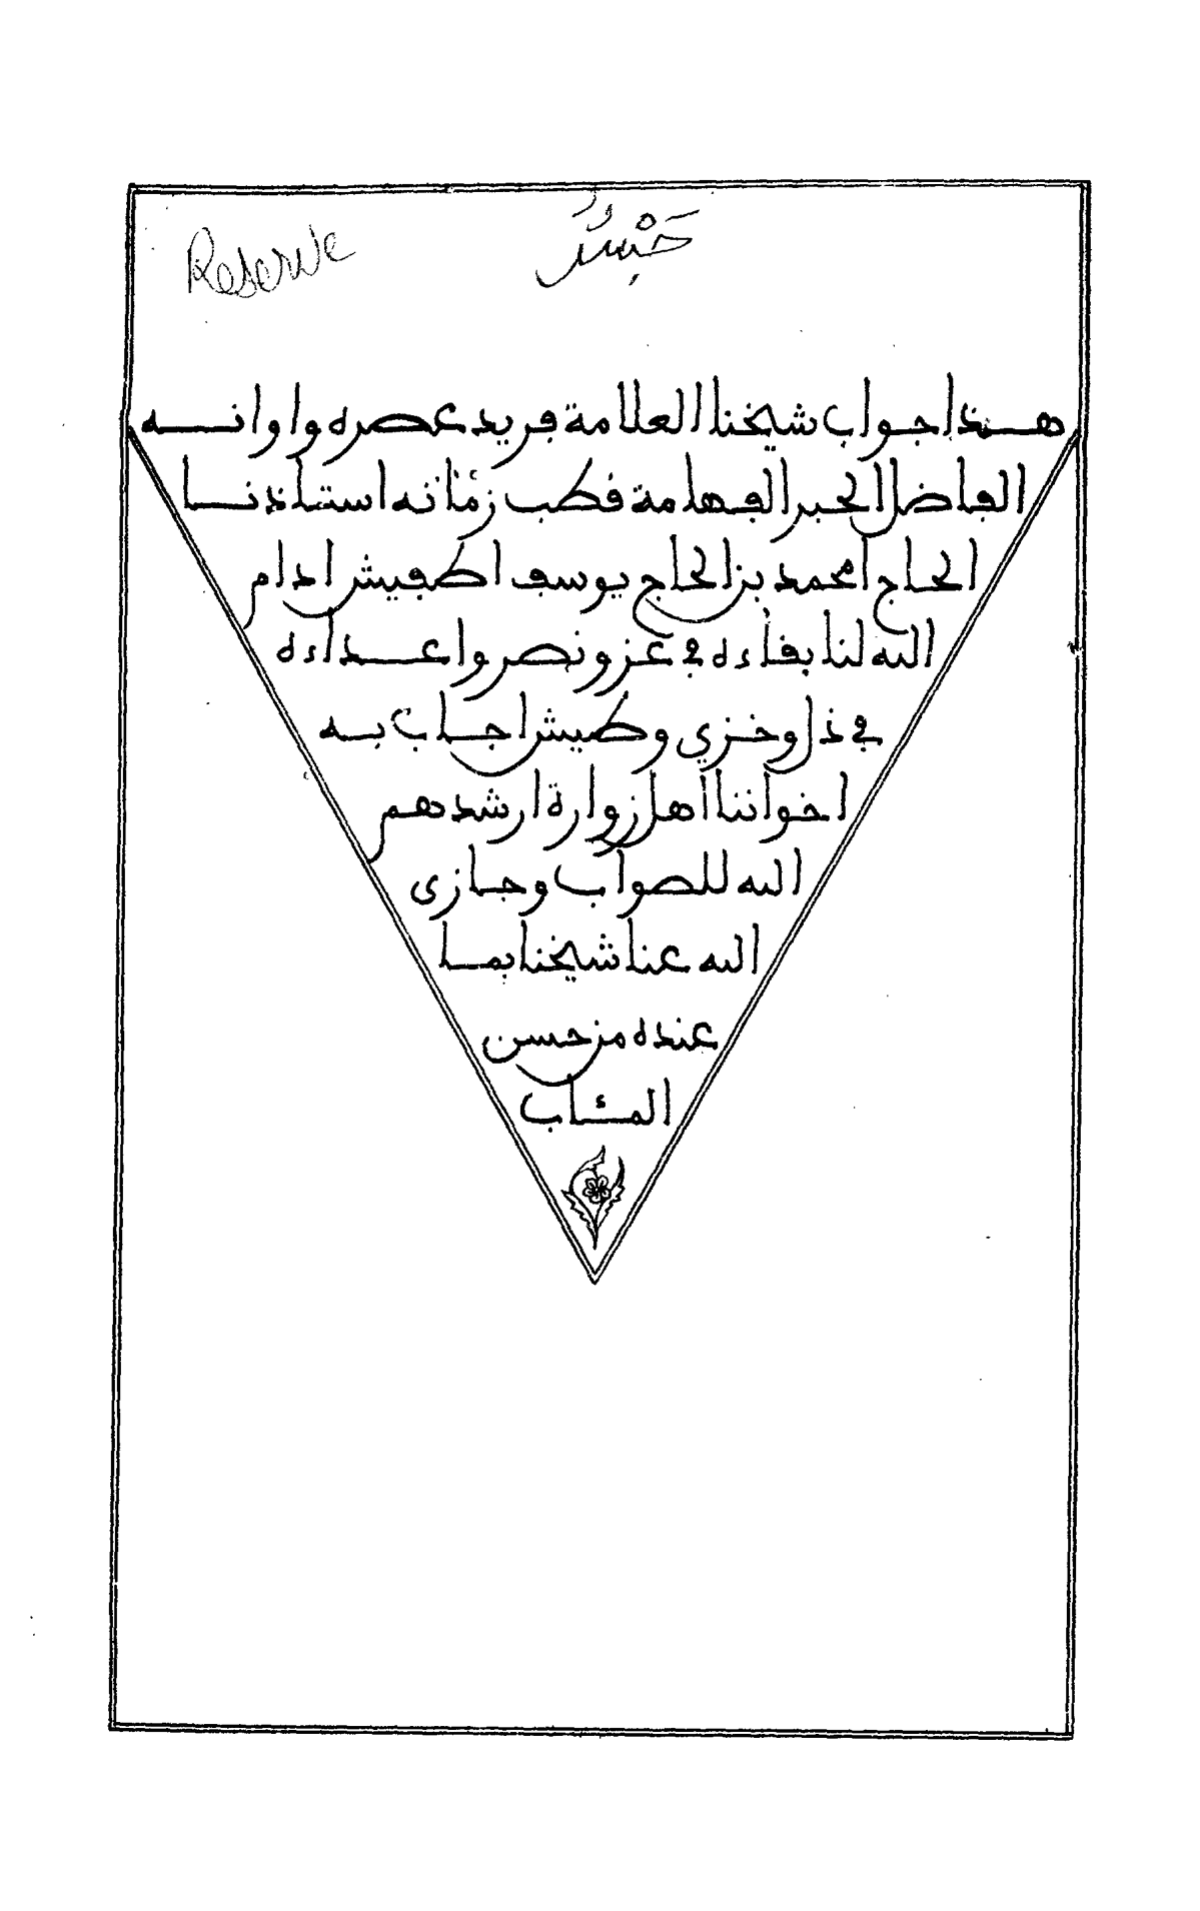 Reserve
حَبْسٌ
هـذا جواب شيخنا العلامة فريد عصره واوانه
الفاضل الحبر الفهامة قطب زمانه استاذنا
الحاج امحمد بن الحاج يوسف اطفيش ادام
الله لنا بقاءه في عز ونصر واعداءه
في ذل وخزي وطيش اجاب به
اخواننا اهل زوارة ارشدهم
الله للصواب وجازى
الله عنا شيخنا بما
عنده من حسن
المئاب